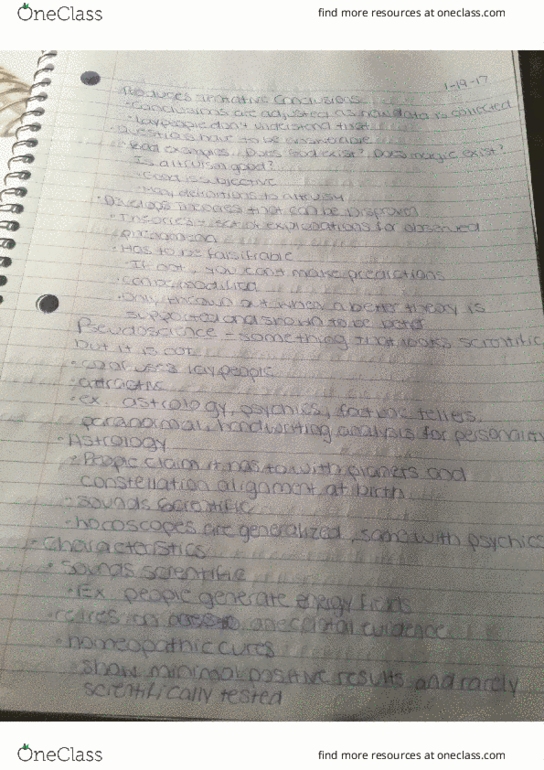 OneClass
find more resources at oneclass.com
1-19-17
Produces tentative conclusions
- Conclusions are adjusted as new data is collected
- Lay people don't understand that
- Questions have to be
- Bad examples. Does God exist? Does magic exist?
Is altruism good?
- Good is subjective
- Many definitions to altruism
- Develops theories that can be disproved
- Theories - set of explanations for observed
phenomenon
- Has to be falsifiable
- If not, you can't make predictions
- Can be modified
- Only thrown out when a better theory is
supported and shown to be better
Pseudoscience - something that looks scientific,
but it is not
- lay people
- attractive
- ex. astrology, psychics, fortune tellers,
paranormal, handwriting analysis for personality
- Astrology
- People claim it has to with planets and
constellation alignment at birth
- Sounds scientific
- horoscopes are generalized, same with psychics
- Characteristics
- Sounds scientific
- Ex people generate energy fields
- relies on anecdotal evidence
- homeopathic cures
- show minimal positive results and rarely
scientifically tested
OneClass
find more resources at oneclass.com